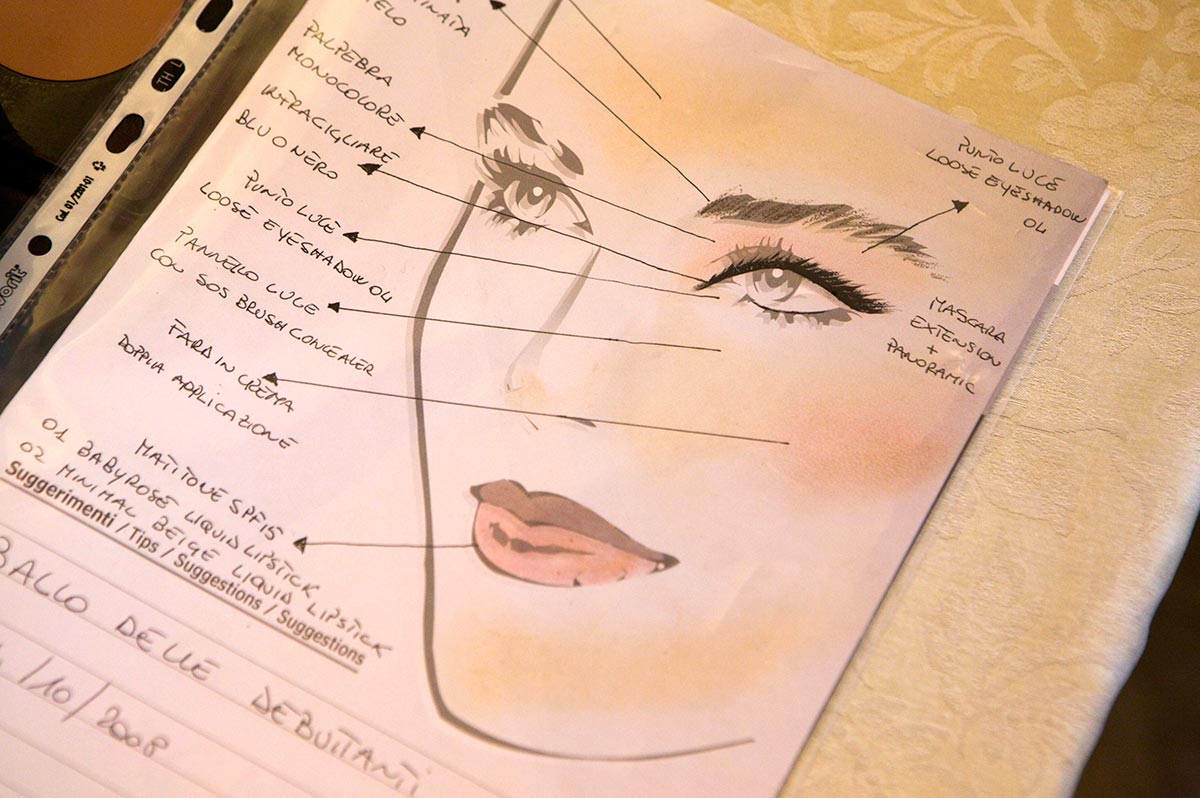 PALPEBRA
MONOCOLORE
INTRACIGLIARE
BLU O NERO
PUNTO LUCE
LOOSE EYESHADOW 04
PANNELLO LUCE
CON SOS BRUSH CONCEALER
FARD IN CREMA
DOPPIA APPLICAZIONE
MATITONE SPF15
01 BABYROSE LIQUID LIPSTICK
02 MINIMAL BEIGE LIQUID LIPSTICK
PUNTO LUCE
LOOSE EYESHADOW
04
MASCARA
EXTENSION
+
PANORAMIC
Suggerimenti / Tips / Suggestions / Suggestions
BALLO DELLE DEBUTTANTI
/10/2008